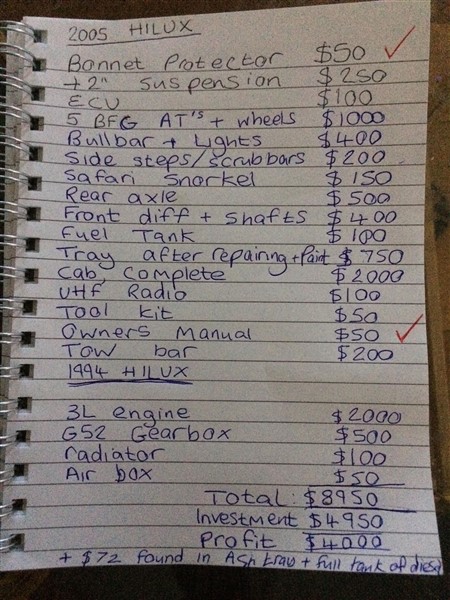 2005 HILUX
Bonnet Protector $50
+2" suspension $250
ECU $100
5 BFG AT's + wheels $1000
Bullbar + Lights $400
Side steps/scrubbars $200
Safari Snorkel $150
Rear axle $500
Front diff + shafts $400
Fuel Tank $100
Tray after repairing + Paint $750
Cab, complete $2000
UHF Radio $100
Tool kit $50
Owners Manual $50
Tow bar $200
1994 HILUX
3L engine $2000
G52 Gearbox $500
radiator $100
Air box $50
Total: $8950
Investment $4950
Profit $4000
+ $72 found in Ash tray + full tank of diesel